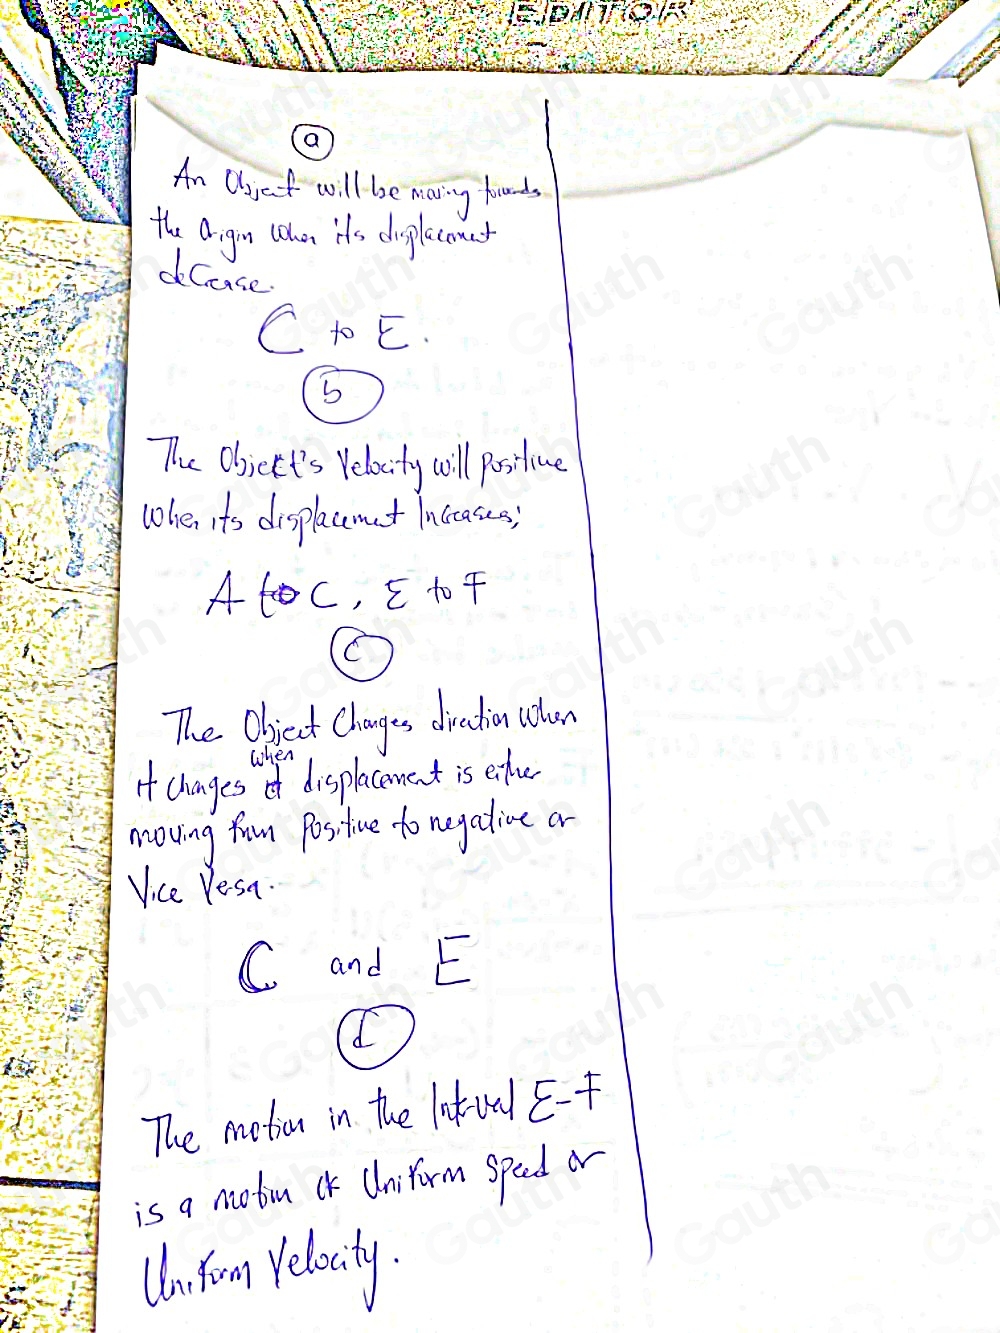 EDITOR
a
An Object will be moving towards
the Origin when its displacement
deCrease.
C to E.
b
The Objects's Velocity will positive
when its displacement Increases;
A to C, E to F
C
The Object Changes direction when
when
it changes it displacement is either
moving from Positive to negative or
Vice Versa.
C and E
d
The motion in the Interval E-F
is a motion of Uniform Speed or
Uniform Velocity.